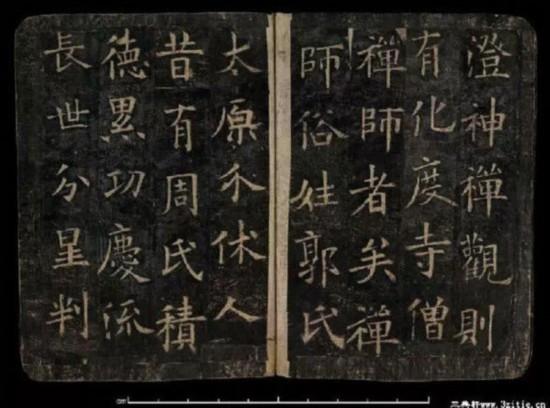 澄神禪觀則
有化度寺僧
禪師者矣禪
師俗姓郭氏
太原介休人
昔有周氏積
德累功慶流
長世分星判
www.3zitie.cn